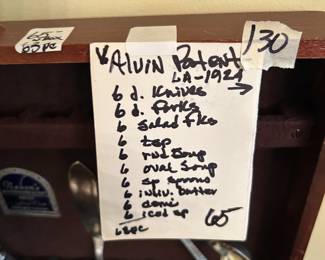 65-
65pc
Alvin Patent
130
LA-1924
6 d. Knives
6 d. Forks
6 Salad fks
6 tsp
6 rnd Soup
6 oval Soup
6 sp spoons
6 indiv. butter
6 demi
6 iced sp
65